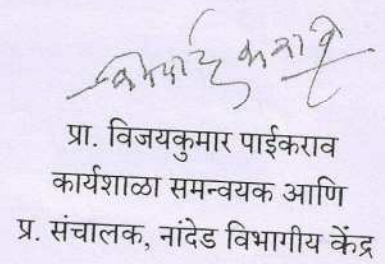 प्रा. विजयकुमार पाईकराव
कार्यशाळा समन्वयक आणि
प्र. संचालक, नांदेड विभागीय केंद्र